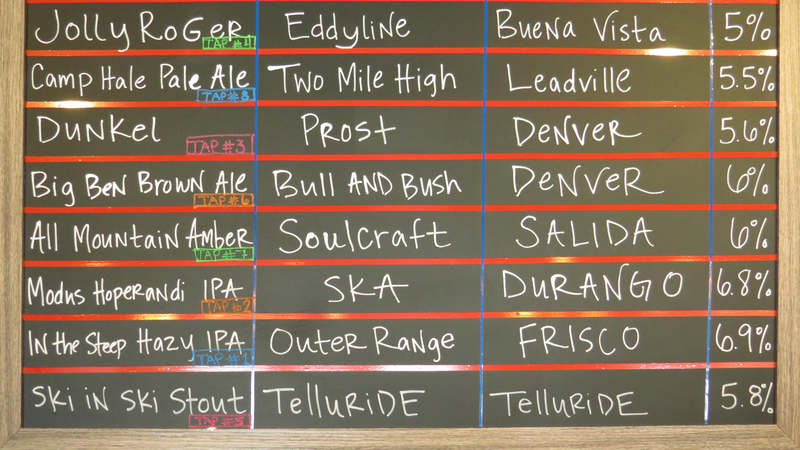 Jolly RoGer Eddyline Buena Vista 5%
TAP #4
Camp Hale Pale Ale Two Mile High Leadville 5.5%
TAP #8
Dunkel Prost Denver 5.6%
TAP #3
Big Ben Brown Ale Bull AND Bush Denver 6%
TAP #6
All Mountain Amber Soulcraft SALIDA 6%
TAP #7
Modus Hoperandi IPA SKA DURANGO 6.8%
TAP #2
IN the Steep Hazy IPA Outer Range FRISCO 6.9%
TAP #1
Ski iN Ski Stout TelluRiDE TelluRiDE 5.8%
TAP #5